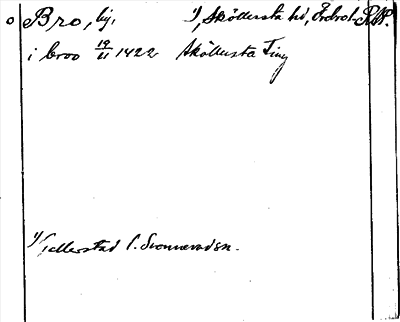 o Bro, by. 1/, Sköllersta hd, Örebro l. RAP.
i broo 19/11 1422 Sköllersta Ting
1/ Gellerstad l. Svennevadsn.